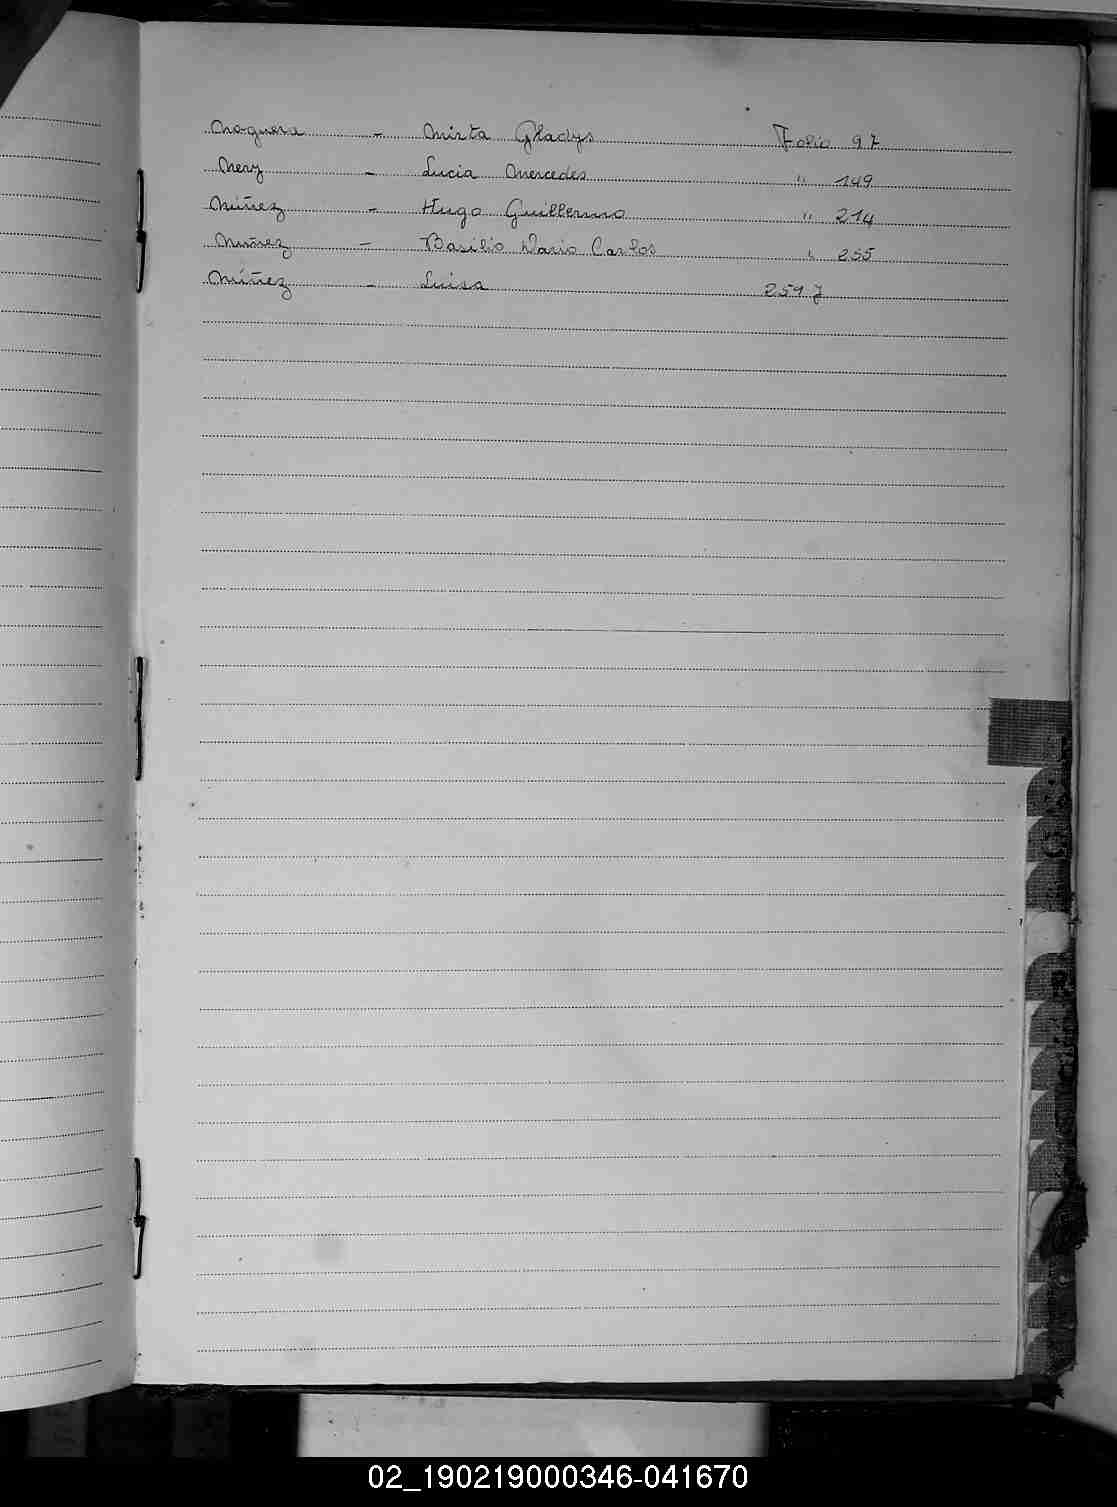 Noguera - Mirta Gladys Folio 97
Nery - Lucia Mercedes " 149
Núñez - Hugo Guillermo " 214
Nuñez - Basilio Dario Carlos " 255
Núñez - Luisa 259
02_190219000346-041670